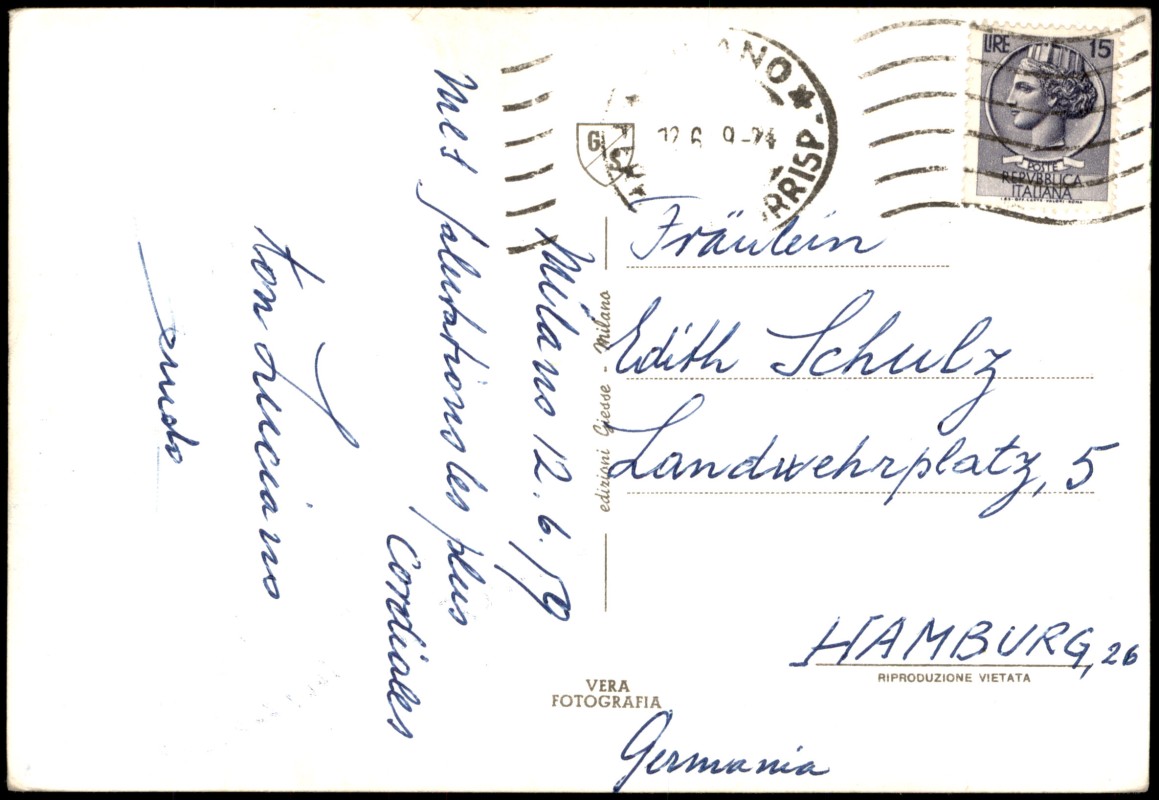 Milano 12.6.59
Mes salutations les plus
cordiales
ton Luciano
LIRE 15
POSTE
REPVBBLICA
ITALIANA
ANO
RRISP.
12 6
GS
edizioni Giesse - Milano
Fräulein
Edith Schulz
Landwehrplatz, 5
HAMBURG, 26
RIPRODUZIONE VIETATA
VERA
FOTOGRAFIA
Germania